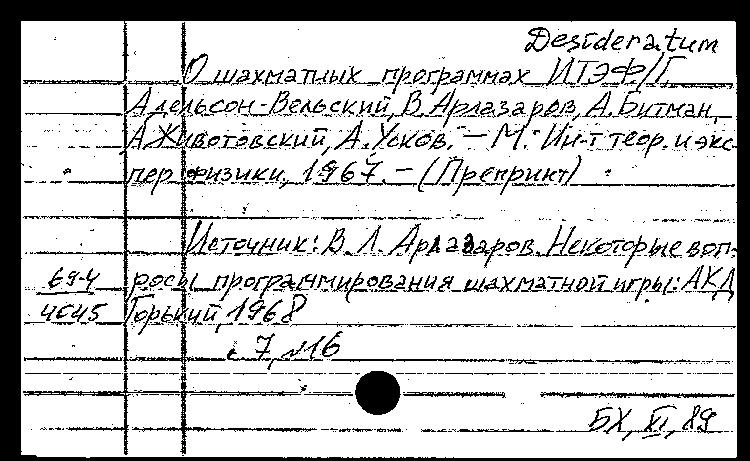 Desideratum
О шахматных программах ИТЭФ/Г.
Адельсон-Вельский, В. Арлазаров, А. Битман,
А. Животовский, А. Усков. – М.: Ин-т теор. и экс-
пер. физики, 1967. – (Препринт)
Источник: В. Л. Арлазаров. Некоторые воп-
росы программирования шахматной игры: АКД
69-4
4645
Горький, 1968
с 7, №16
БХ, XI, 89